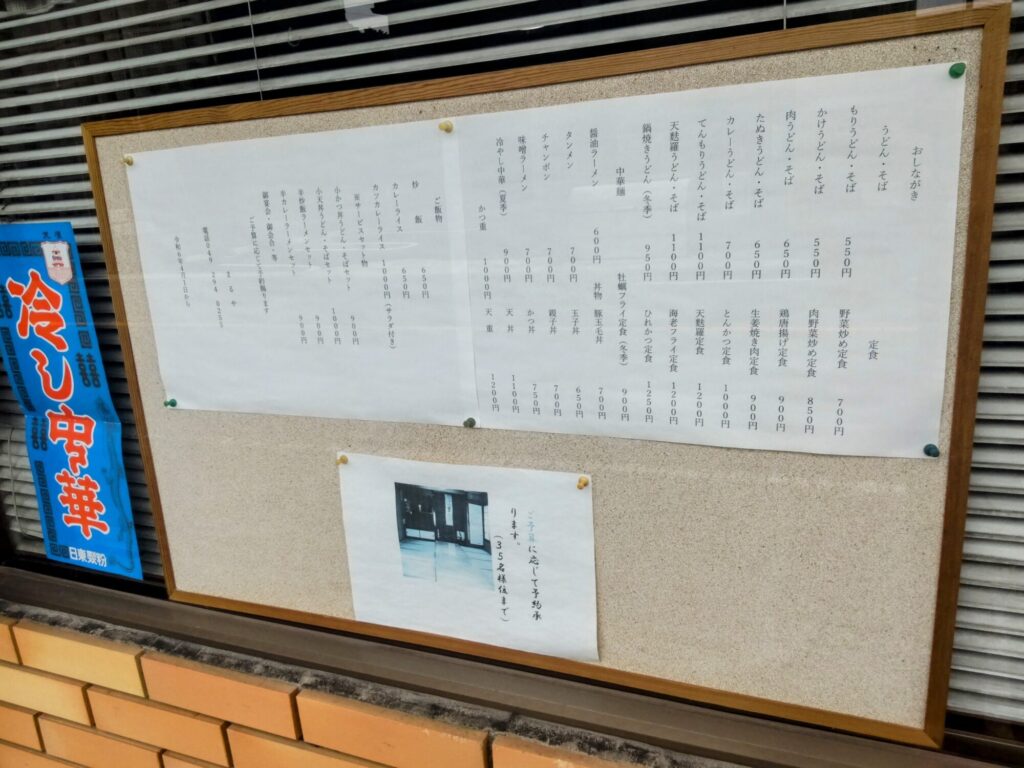 おしながき
うどん・そば
定食
もりうどん・そば 550円 野菜炒め定食 700円
かけうどん・そば 550円 肉野菜炒め定食 850円
肉うどん・そば 650円 鶏唐揚げ定食 900円
たぬきうどん・そば 650円 生姜焼き肉定食 900円
カレーうどん・そば 700円 とんかつ定食 1000円
てんもりうどん・そば 1100円 天麩羅定食 1200円
天麩羅うどん・そば 1100円 海老フライ定食 1200円
鍋焼きうどん(冬季) 950円 ひれかつ定食 1250円
中華麺 牡蠣フライ定食(冬季) 900円
醤油ラーメン 600円 丼物 豚玉毛丼 700円
タンメン 700円 玉子丼 650円
チャンポン 700円 親子丼 700円
味噌ラーメン 700円 かつ丼 750円
冷やし中華(夏季) 900円 天丼 1100円
かつ重 1000円 天重 1200円
ご飯物
炒飯 650円
カレーライス 650円
カツカレーライス 1000円(サラダ付き)
※サービスセット物
小かつ丼うどん・そばセット 900円
小天丼うどん・そばセット 1000円
半炒飯ラーメンセット 900円
半カレーラーメンセット 900円
御宴会・御会合・等
ご予算に応じて予約賜ります
電話049 294 0253
令和6年4月1日から
ご予算に応じて予約承
ります。
(35名様位まで)
冷し中華
日東製粉